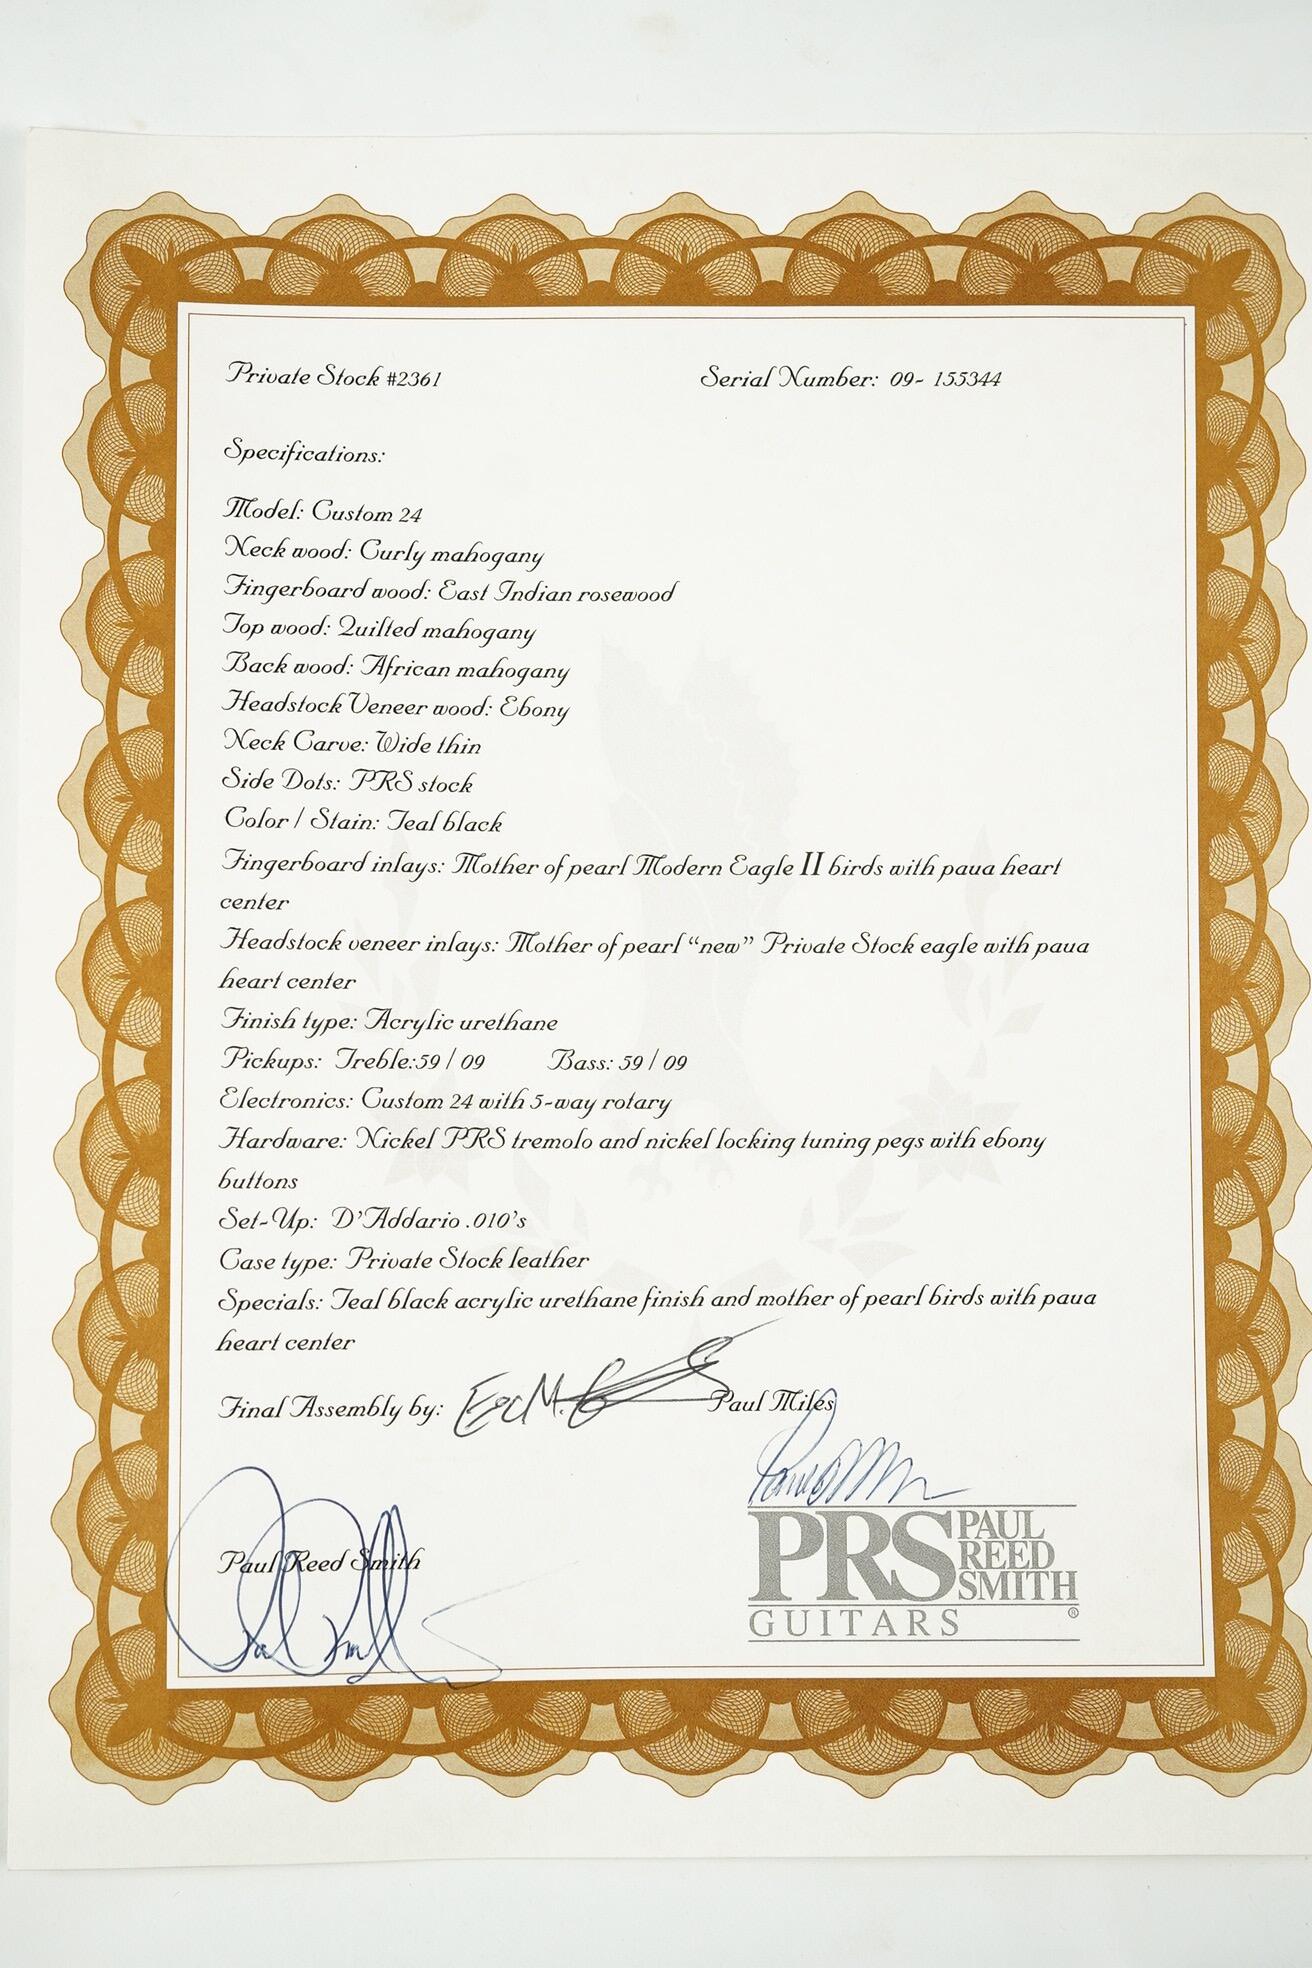 Private Stock #2361 Serial Number: 09- 155344
Specifications:
Model: Custom 24
Neck wood: Curly mahogany
Fingerboard wood: East Indian rosewood
Top wood: Quilted mahogany
Back wood: African mahogany
Headstock Veneer wood: Ebony
Neck Carve: Wide thin
Side Dots: PRS stock
Color / Stain: Teal black
Fingerboard inlays: Mother of pearl Modern Eagle II birds with paua heart
center
Headstock veneer inlays: Mother of pearl “new” Private Stock eagle with paua
heart center
Finish type: Acrylic urethane
Pickups: Treble:59 / 09 Bass: 59 / 09
Electronics: Custom 24 with 5-way rotary
Hardware: Nickel PRS tremolo and nickel locking tuning pegs with ebony
buttons
Set-Up: D’Addario .010’s
Case type: Private Stock leather
Specials: Teal black acrylic urethane finish and mother of pearl birds with paua
heart center
Final Assembly by: Paul Miles
Paul Reed Smith
PRS PAUL
REED
SMITH
GUITARS ®